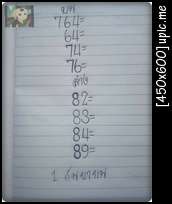 บน
764=
64=
74=
76=
ล่าง
82=
83=
84=
89=
[450x600] upic.me